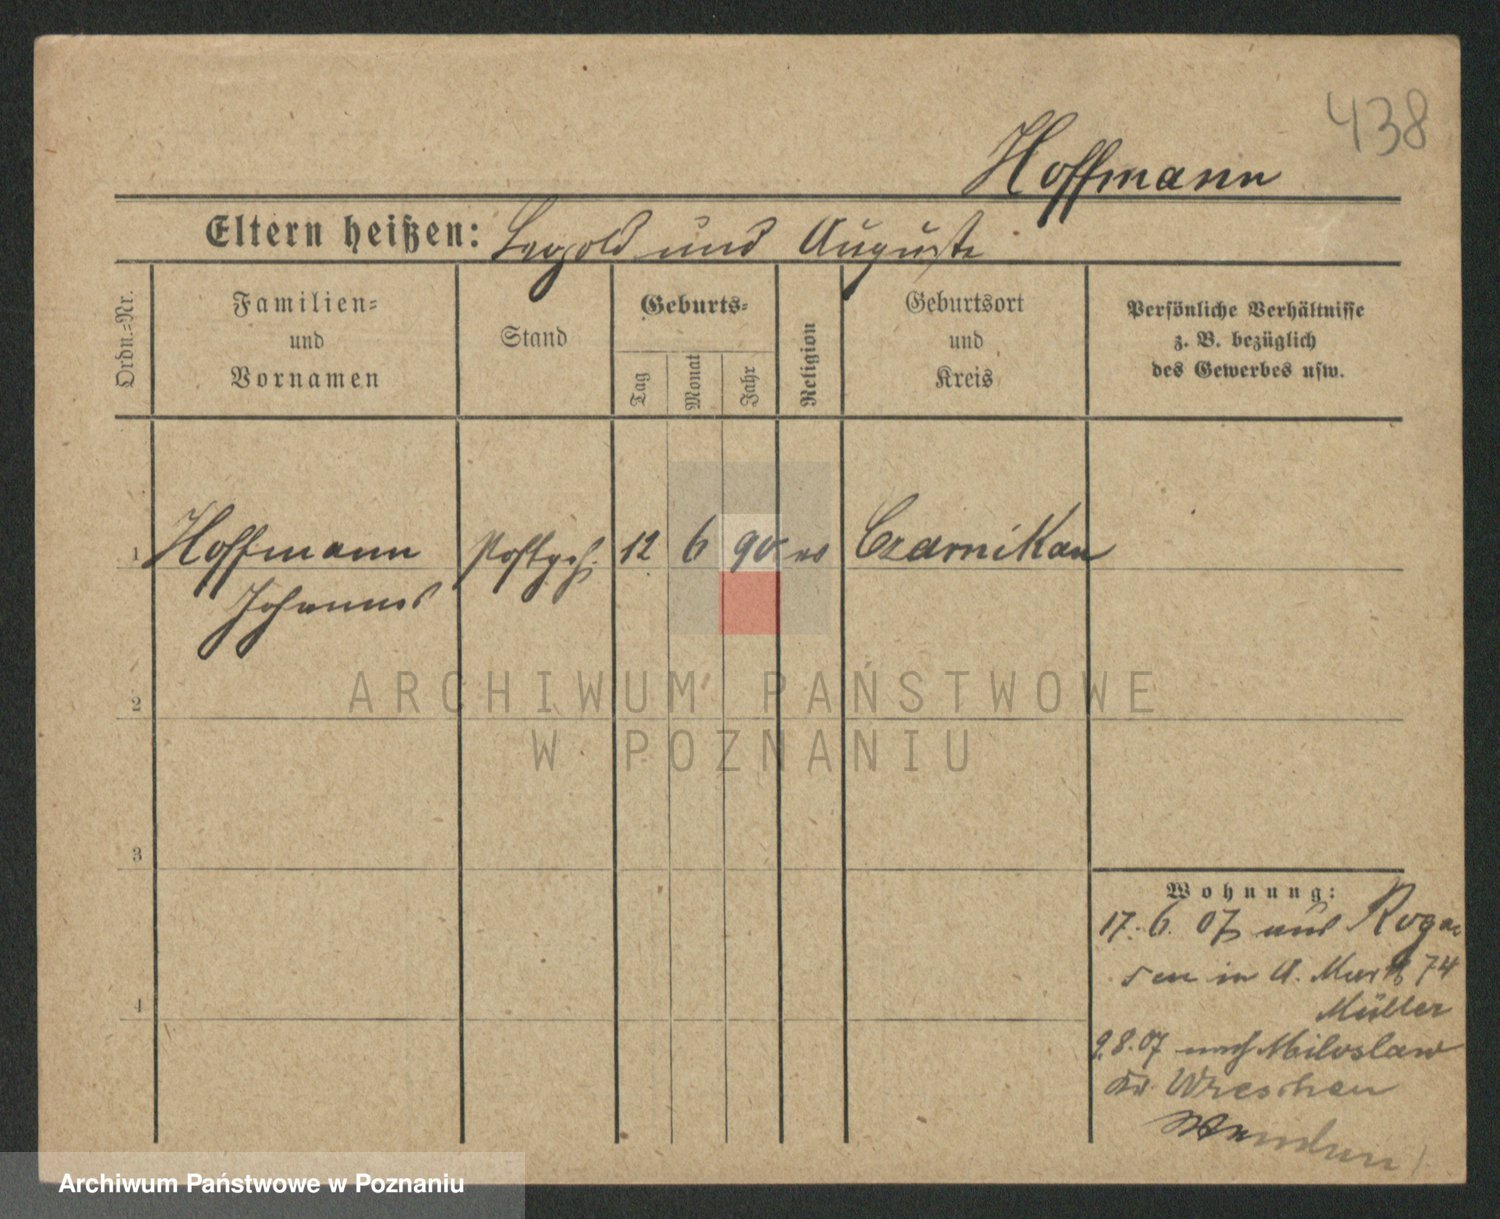 438
Hoffmann
Eltern heißen: Leopold und Auguste
Ordn.=Nr.
Familien=
und
Vornamen
Stand
Geburts=
Tag
Monat
Jahr
Religion
Geburtsort
und
Kreis
Persönliche Verhältnisse
z. B. bezüglich
des Gewerbes usw.
1 Hoffmann Postgeh. 12 6 90 ev Czarnikau
Johannes
2
3
4
Wohnung:
17. 6. 07 aus Roga
sen in A. Markt 74
Müller
9.8.07 nach Miloslaw
Kr. Wreschen
ARCHIWUM PAŃSTWOWE
W POZNANIU
Archiwum Państwowe w Poznaniu